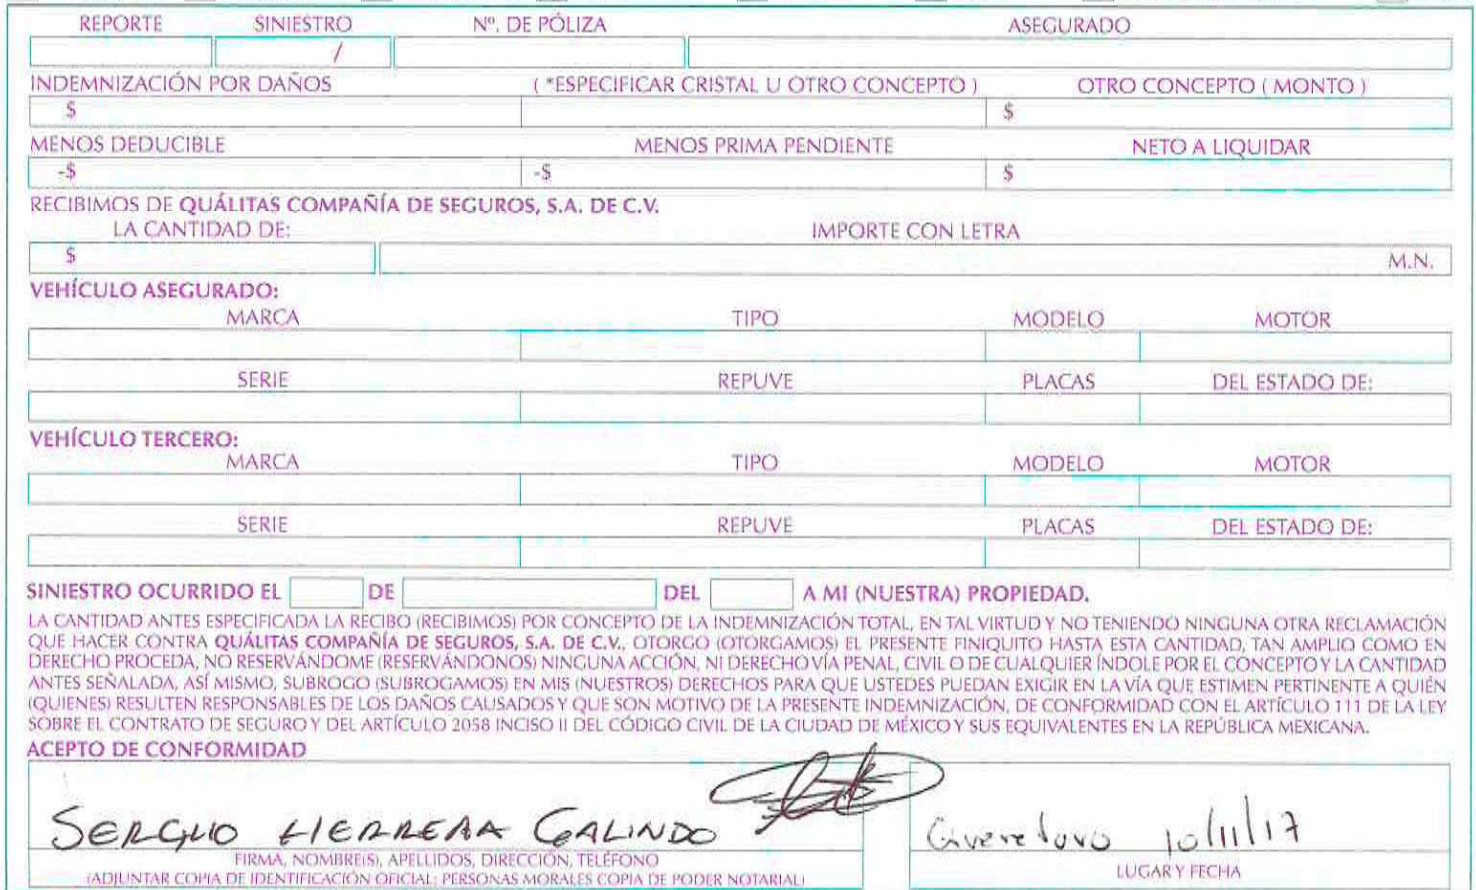 REPORTE SINIESTRO Nº. DE PÓLIZA ASEGURADO
/
INDEMNIZACIÓN POR DAÑOS ( *ESPECIFICAR CRISTAL U OTRO CONCEPTO ) OTRO CONCEPTO ( MONTO )
$ $
MENOS DEDUCIBLE MENOS PRIMA PENDIENTE NETO A LIQUIDAR
-$ -$ $
RECIBIMOS DE QUÁLITAS COMPAÑÍA DE SEGUROS, S.A. DE C.V.
LA CANTIDAD DE: IMPORTE CON LETRA
$ M.N.
VEHÍCULO ASEGURADO:
MARCA TIPO MODELO MOTOR
SERIE REPUVE PLACAS DEL ESTADO DE:
VEHÍCULO TERCERO:
MARCA TIPO MODELO MOTOR
SERIE REPUVE PLACAS DEL ESTADO DE:
SINIESTRO OCURRIDO EL DE DEL A MI (NUESTRA) PROPIEDAD.
LA CANTIDAD ANTES ESPECIFICADA LA RECIBO (RECIBIMOS) POR CONCEPTO DE LA INDEMNIZACIÓN TOTAL, EN TAL VIRTUD Y NO TENIENDO NINGUNA OTRA RECLAMACIÓN
QUE HACER CONTRA QUÁLITAS COMPAÑÍA DE SEGUROS, S.A. DE C.V., OTORGO (OTORGAMOS) EL PRESENTE FINIQUITO HASTA ESTA CANTIDAD, TAN AMPLIO COMO EN
DERECHO PROCEDA, NO RESERVÁNDOME (RESERVÁNDONOS) NINGUNA ACCIÓN, NI DERECHO VÍA PENAL, CIVIL O DE CUALQUIER ÍNDOLE POR EL CONCEPTO Y LA CANTIDAD
ANTES SEÑALADA, ASÍ MISMO, SUBROGO (SUBROGAMOS) EN MIS (NUESTROS) DERECHOS PARA QUE USTEDES PUEDAN EXIGIR EN LA VÍA QUE ESTIMEN PERTINENTE A QUIÉN
(QUIENES) RESULTEN RESPONSABLES DE LOS DAÑOS CAUSADOS Y QUE SON MOTIVO DE LA PRESENTE INDEMNIZACIÓN, DE CONFORMIDAD CON EL ARTÍCULO 111 DE LA LEY
SOBRE EL CONTRATO DE SEGURO Y DEL ARTÍCULO 2058 INCISO II DEL CÓDIGO CIVIL DE LA CIUDAD DE MÉXICO Y SUS EQUIVALENTES EN LA REPÚBLICA MEXICANA.
ACEPTO DE CONFORMIDAD
SERGIO HERRERA GALINDO Queretaro 10/11/17
FIRMA, NOMBRE(S), APELLIDOS, DIRECCIÓN, TELÉFONO LUGAR Y FECHA
(ADJUNTAR COPIA DE IDENTIFICACIÓN OFICIAL; PERSONAS MORALES COPIA DE PODER NOTARIAL)